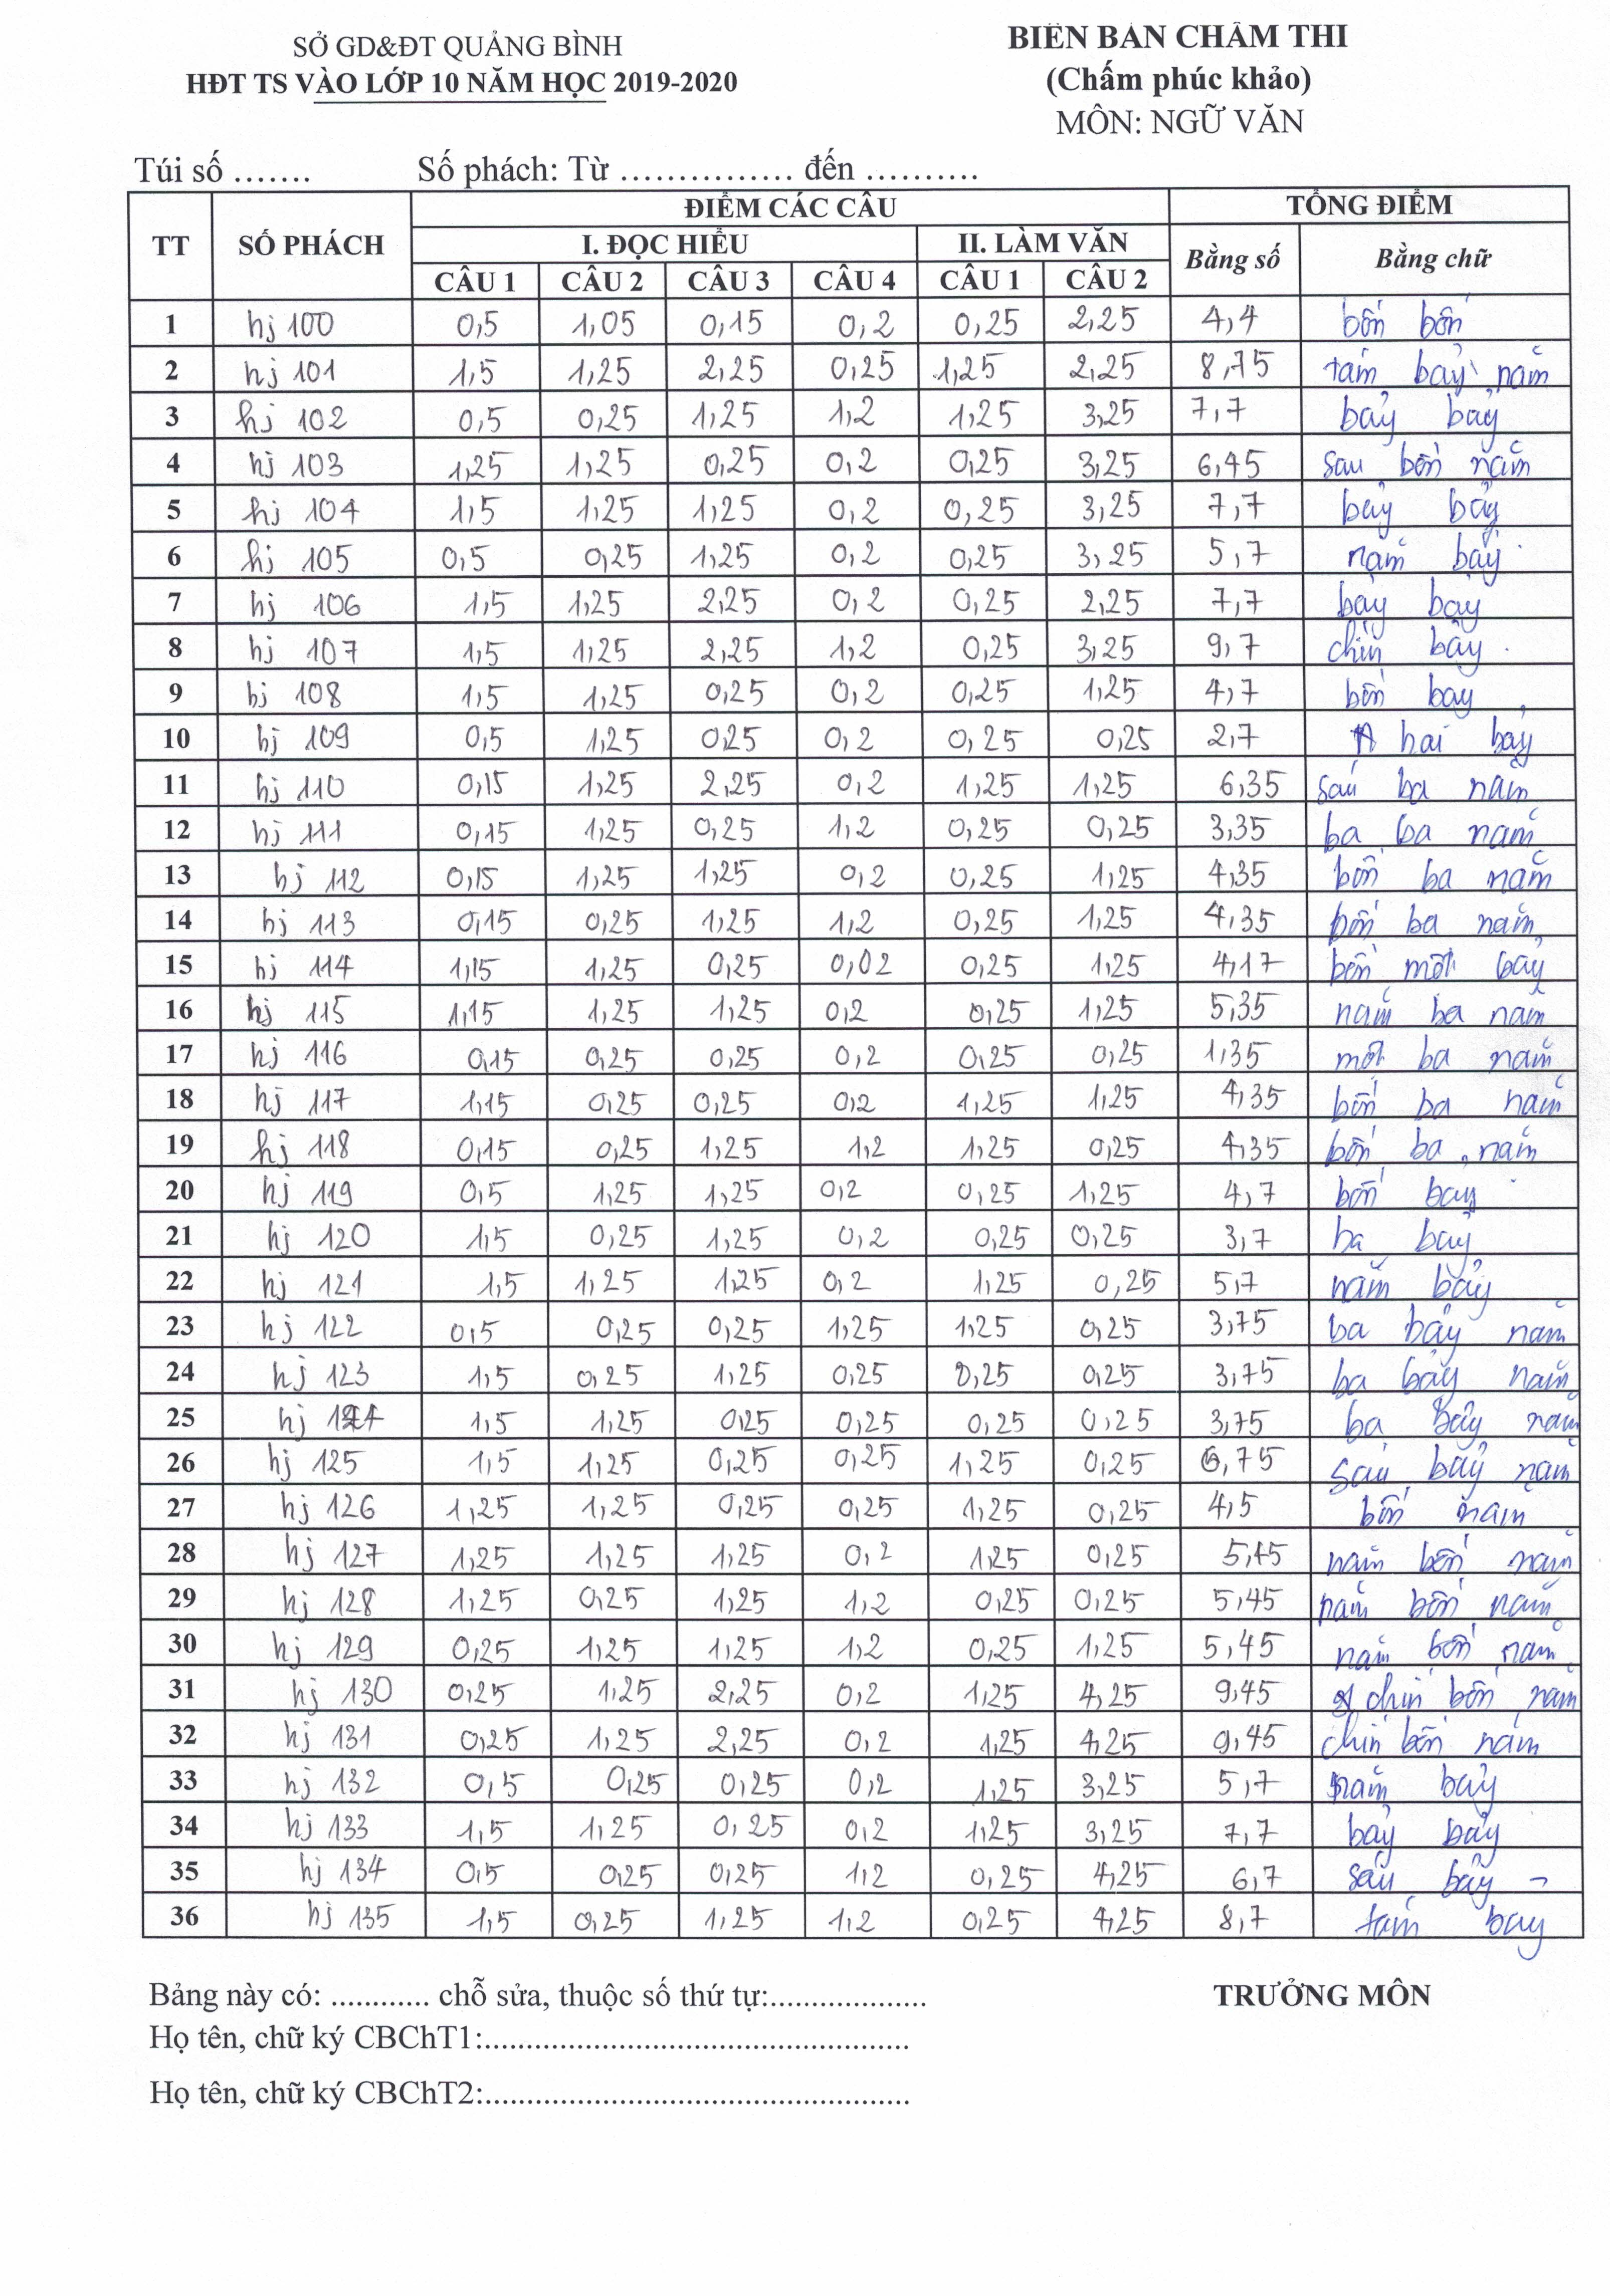 SỞ GD&ĐT QUẢNG BÌNH
HĐT TS VÀO LỚP 10 NĂM HỌC 2019-2020
BIÊN BẢN CHẤM THI
(Chấm phúc khảo)
MÔN: NGỮ VĂN
Túi số ....... Số phách: Từ ............... đến ..........
TT SỐ PHÁCH ĐIỂM CÁC CÂU TỔNG ĐIỂM
I. ĐỌC HIỂU II. LÀM VĂN Bằng số Bằng chữ
CÂU 1 CÂU 2 CÂU 3 CÂU 4 CÂU 1 CÂU 2
1 hj 100 0,5 1,05 0,15 0,2 0,25 2,25 4,4 bốn bốn
2 hj 101 1,5 1,25 2,25 0,25 1,25 2,25 8,75 tám bảy năm
3 hj 102 0,5 0,25 1,25 1,2 1,25 3,25 7,7 bảy bảy
4 hj 103 1,25 1,25 0,25 0,2 0,25 3,25 6,45 sau bốn năm
5 hj 104 1,5 1,25 1,25 0,2 0,25 3,25 7,7 bảy bảy
6 hj 105 0,5 0,25 1,25 0,2 0,25 3,25 5,7 năm bảy
7 hj 106 1,5 1,25 2,25 0,2 0,25 2,25 7,7 bảy bảy
8 hj 107 1,5 1,25 2,25 1,2 0,25 3,25 9,7 chín bảy
9 hj 108 1,5 1,25 0,25 0,2 0,25 1,25 4,7 bốn bay
10 hj 109 0,5 1,25 0,25 0,2 0,25 0,25 2,7 hai bảy
11 hj 110 0,15 1,25 2,25 0,2 1,25 1,25 6,35 sáu ba năm
12 hj 111 0,15 1,25 0,25 1,2 0,25 0,25 3,35 ba ba năm
13 hj 112 0,15 1,25 1,25 0,2 0,25 1,25 4,35 bốn ba năm
14 hj 113 0,15 0,25 1,25 1,2 0,25 1,25 4,35 bốn ba năm
15 hj 114 1,15 1,25 0,25 0,02 0,25 1,25 4,17 bốn một bảy
16 hj 115 1,15 1,25 1,25 0,2 0,25 1,25 5,35 năm ba năm
17 hj 116 0,15 0,25 0,25 0,2 0,25 0,25 1,35 một ba năm
18 hj 117 1,15 0,25 0,25 0,2 1,25 1,25 4,35 bốn ba năm
19 hj 118 0,15 0,25 1,25 1,2 1,25 0,25 4,35 bốn ba năm
20 hj 119 0,5 1,25 1,25 0,2 0,25 1,25 4,7 bốn bay
21 hj 120 1,5 0,25 1,25 0,2 0,25 0,25 3,7 ba bảy
22 hj 121 1,5 1,25 1,25 0,2 1,25 0,25 5,7 năm bảy
23 hj 122 0,5 0,25 0,25 1,25 1,25 0,25 3,75 ba bảy năm
24 hj 123 1,5 0,25 1,25 0,25 0,25 0,25 3,75 ba bảy năm
25 hj 124 1,5 1,25 0,25 0,25 0,25 0,25 3,75 ba bảy năm
26 hj 125 1,5 1,25 0,25 0,25 1,25 0,25 6,75 sáu bảy năm
27 hj 126 1,25 1,25 0,25 0,25 1,25 0,25 4,5 bốn năm
28 hj 127 1,25 1,25 1,25 0,2 1,25 0,25 5,45 năm bốn năm
29 hj 128 1,25 0,25 1,25 1,2 0,25 0,25 5,45 năm bốn năm
30 hj 129 0,25 1,25 1,25 1,2 0,25 1,25 5,45 năm bốn năm
31 hj 130 0,25 1,25 2,25 0,2 1,25 4,25 9,45 chín bốn năm
32 hj 131 0,25 1,25 2,25 0,2 1,25 4,25 9,45 chín bốn năm
33 hj 132 0,5 0,25 0,25 0,2 1,25 3,25 5,7 năm bảy
34 hj 133 1,5 1,25 0,25 0,2 1,25 3,25 7,7 bảy bảy
35 hj 134 0,5 0,25 0,25 1,2 0,25 4,25 6,7 sáu bảy
36 hj 135 1,5 0,25 1,25 1,2 0,25 4,25 8,7 tám bay
Bảng này có: ............ chỗ sửa, thuộc số thứ tự:................... TRƯỞNG MÔN
Họ tên, chữ ký CBChT1:...................................................
Họ tên, chữ ký CBChT2:...................................................